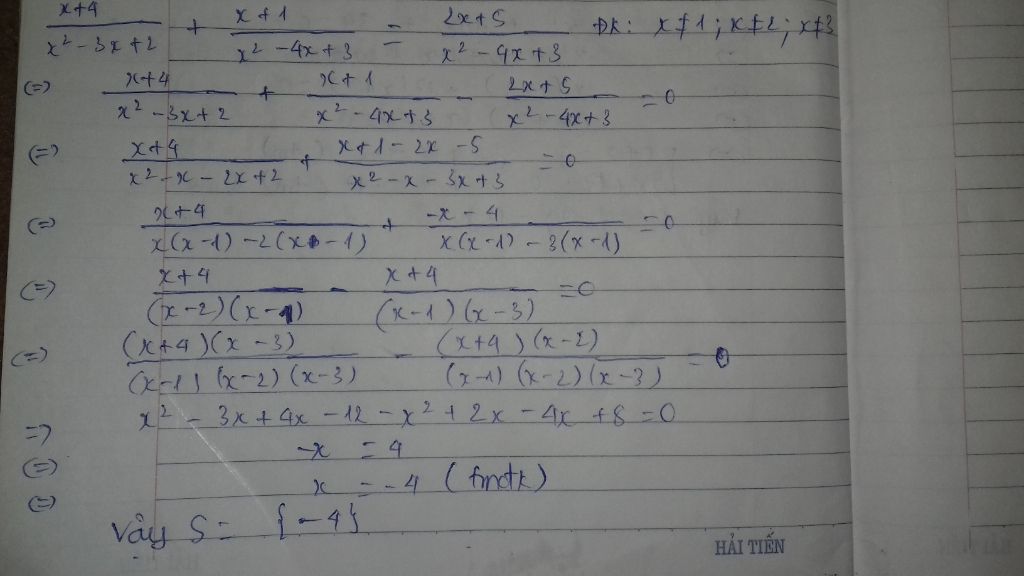 (x+4)/(x² - 3x + 2) + (x+1)/(x² - 4x + 3) = (2x+5)/(x² - 4x + 3) ĐK: x ≠ 1; x ≠ 2; x ≠ 3
(=) (x+4)/(x² - 3x + 2) + (x+1)/(x² - 4x + 3) - (2x+5)/(x² - 4x + 3) = 0
(=) (x+4)/(x² - x - 2x + 2) + (x+1 - 2x - 5)/(x² - x - 3x + 3) = 0
(=) (x+4)/(x(x-1) - 2(x-1)) + (-x - 4)/(x(x-1) - 3(x-1)) = 0
(=) (x+4)/((x-2)(x-1)) - (x+4)/((x-1)(x-3)) = 0
(=) ((x+4)(x-3))/((x-1)(x-2)(x-3)) - ((x+4)(x-2))/((x-1)(x-2)(x-3)) = 0
=) x² - 3x + 4x - 12 - x² + 2x - 4x + 8 = 0
(=) -x = 4
(=) x = -4 (tmđk)
Vậy S = {-4}
HẢI TIẾN